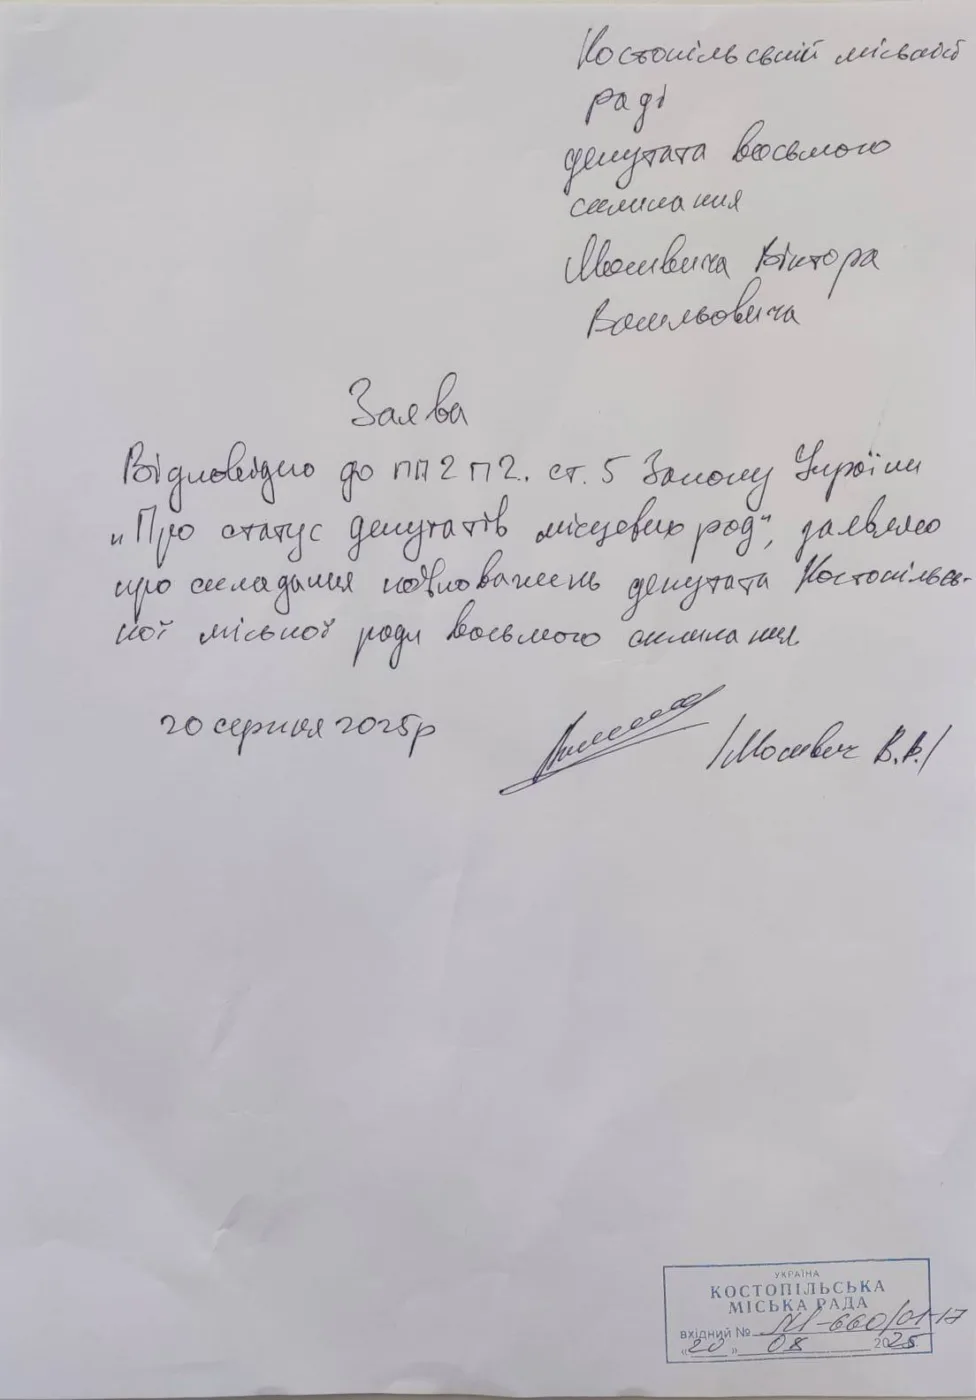 Костопільській міській
раді
депутата восьмого
скликання
Мосійвича Віктора
Васильовича
Заява
Відповідно до пп 2 п 2. ст. 5 Закону України
„Про статус депутатів місцевих рад", заявляю
про складання повноважень депутата Костопільсь-
кої міської ради восьмого скликання
20 серпня 2025р
В.В./
УКРАЇНА
КОСТОПІЛЬСЬКА
МІСЬКА РАДА
вхідний № М-660/01-17
«20» 08 2025